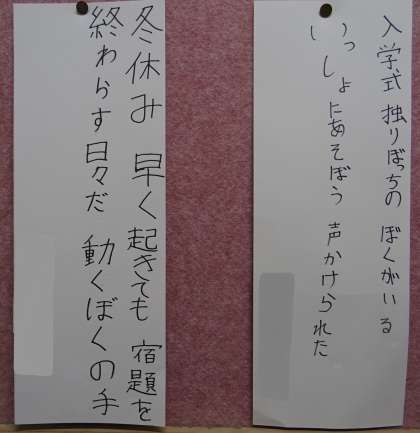 入学式 独りぼっちの ぼくがいる
いっしょにあそぼう 声かけられた
冬休み 早く起きても 宿題を
終わらす日々だ 動くぼくの手